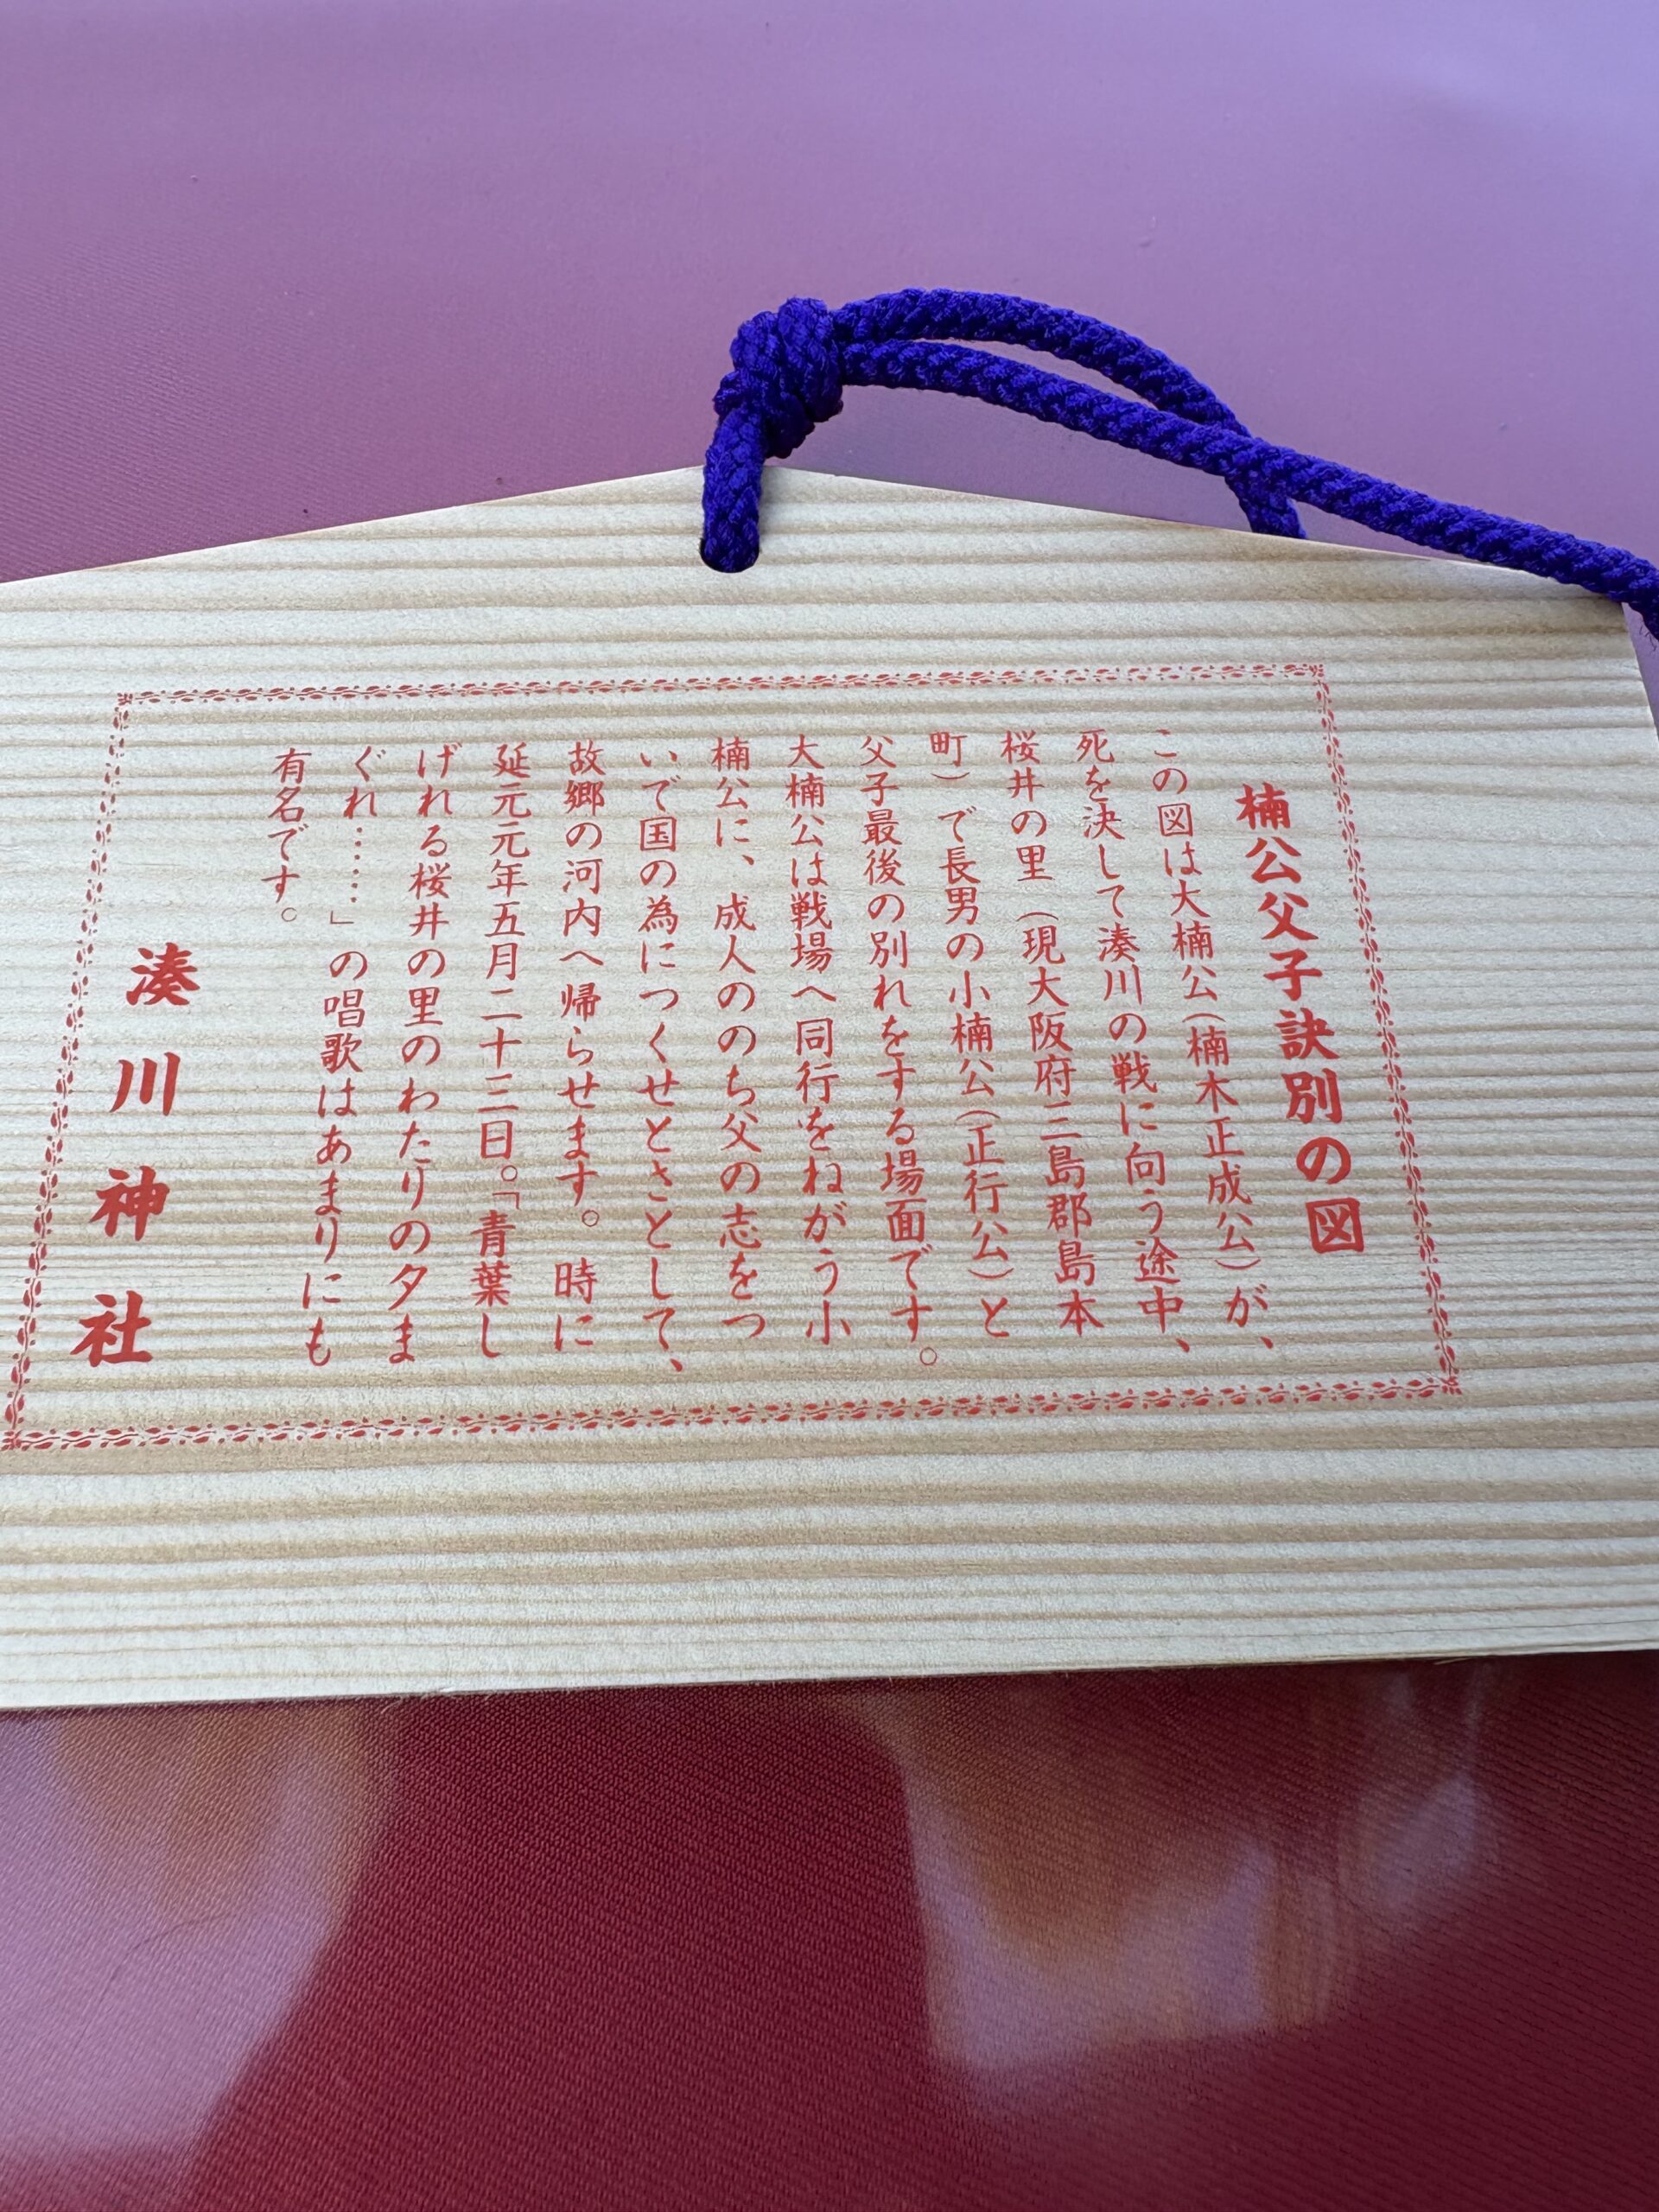 楠公父子訣別の図
この図は大楠公(楠木正成公)が、
死を決して湊川の戦に向う途中、
桜井の里(現大阪府三島郡島本
町)で長男の小楠公(正行公)と
父子最後の別れをする場面です。
大楠公は戦場へ同行をねがう小
楠公に、成人ののち父の志をつ
いで国の為につくせとさとして、
故郷の河内へ帰らせます。時に
延元元年五月二十三日。「青葉し
げれる桜井の里のわたりの夕ま
ぐれ……」の唱歌はあまりにも
有名です。
湊川神社